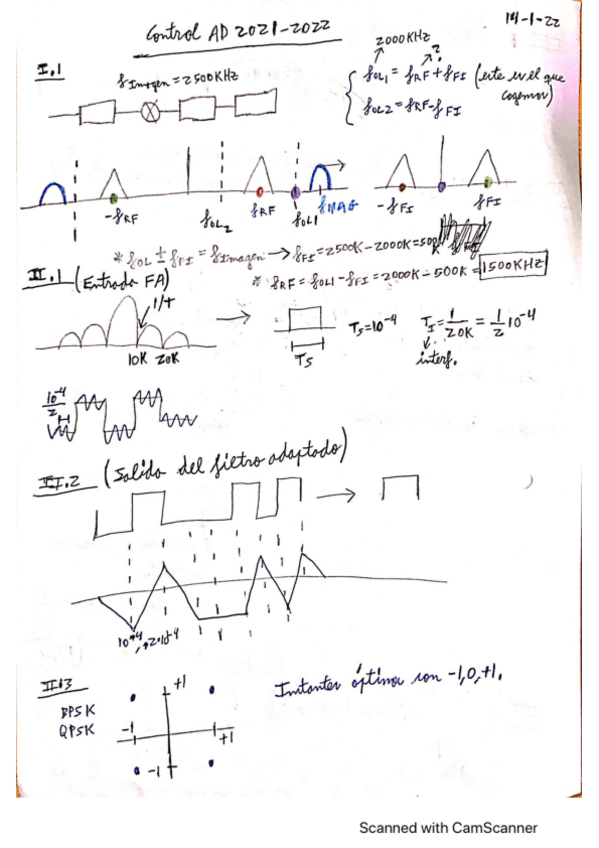 Control AD 2021-2022
14-1-22
I.1
f Imagen = 2500KHz
2000KHz
?
fOL1 = fRF + fFI (este es el que cogemos)
fOL2 = fRF - fFI
-fRF
fOL2
fRF
fOL1
fIMAG
-fFI
fFI
* fOL ± fFI = fImagen → fFI = 2500K - 2000K = 500K
* fRF = fOL1 - fFI = 2000K - 500K = 1500KHz
II.1 (Entrada FA)
1/T
10K 20K
Ts
Ts = 10^-4
TI = 1/20K = 1/2 10^-4
interf.
10^-4/2
II.2 (Salida del filtro adaptado)
10^-4, 2·10^-4
II.3
BPSK
QPSK
+1
-1
+1
-1
Instantes óptimos son -1, 0, +1.
Scanned with CamScanner